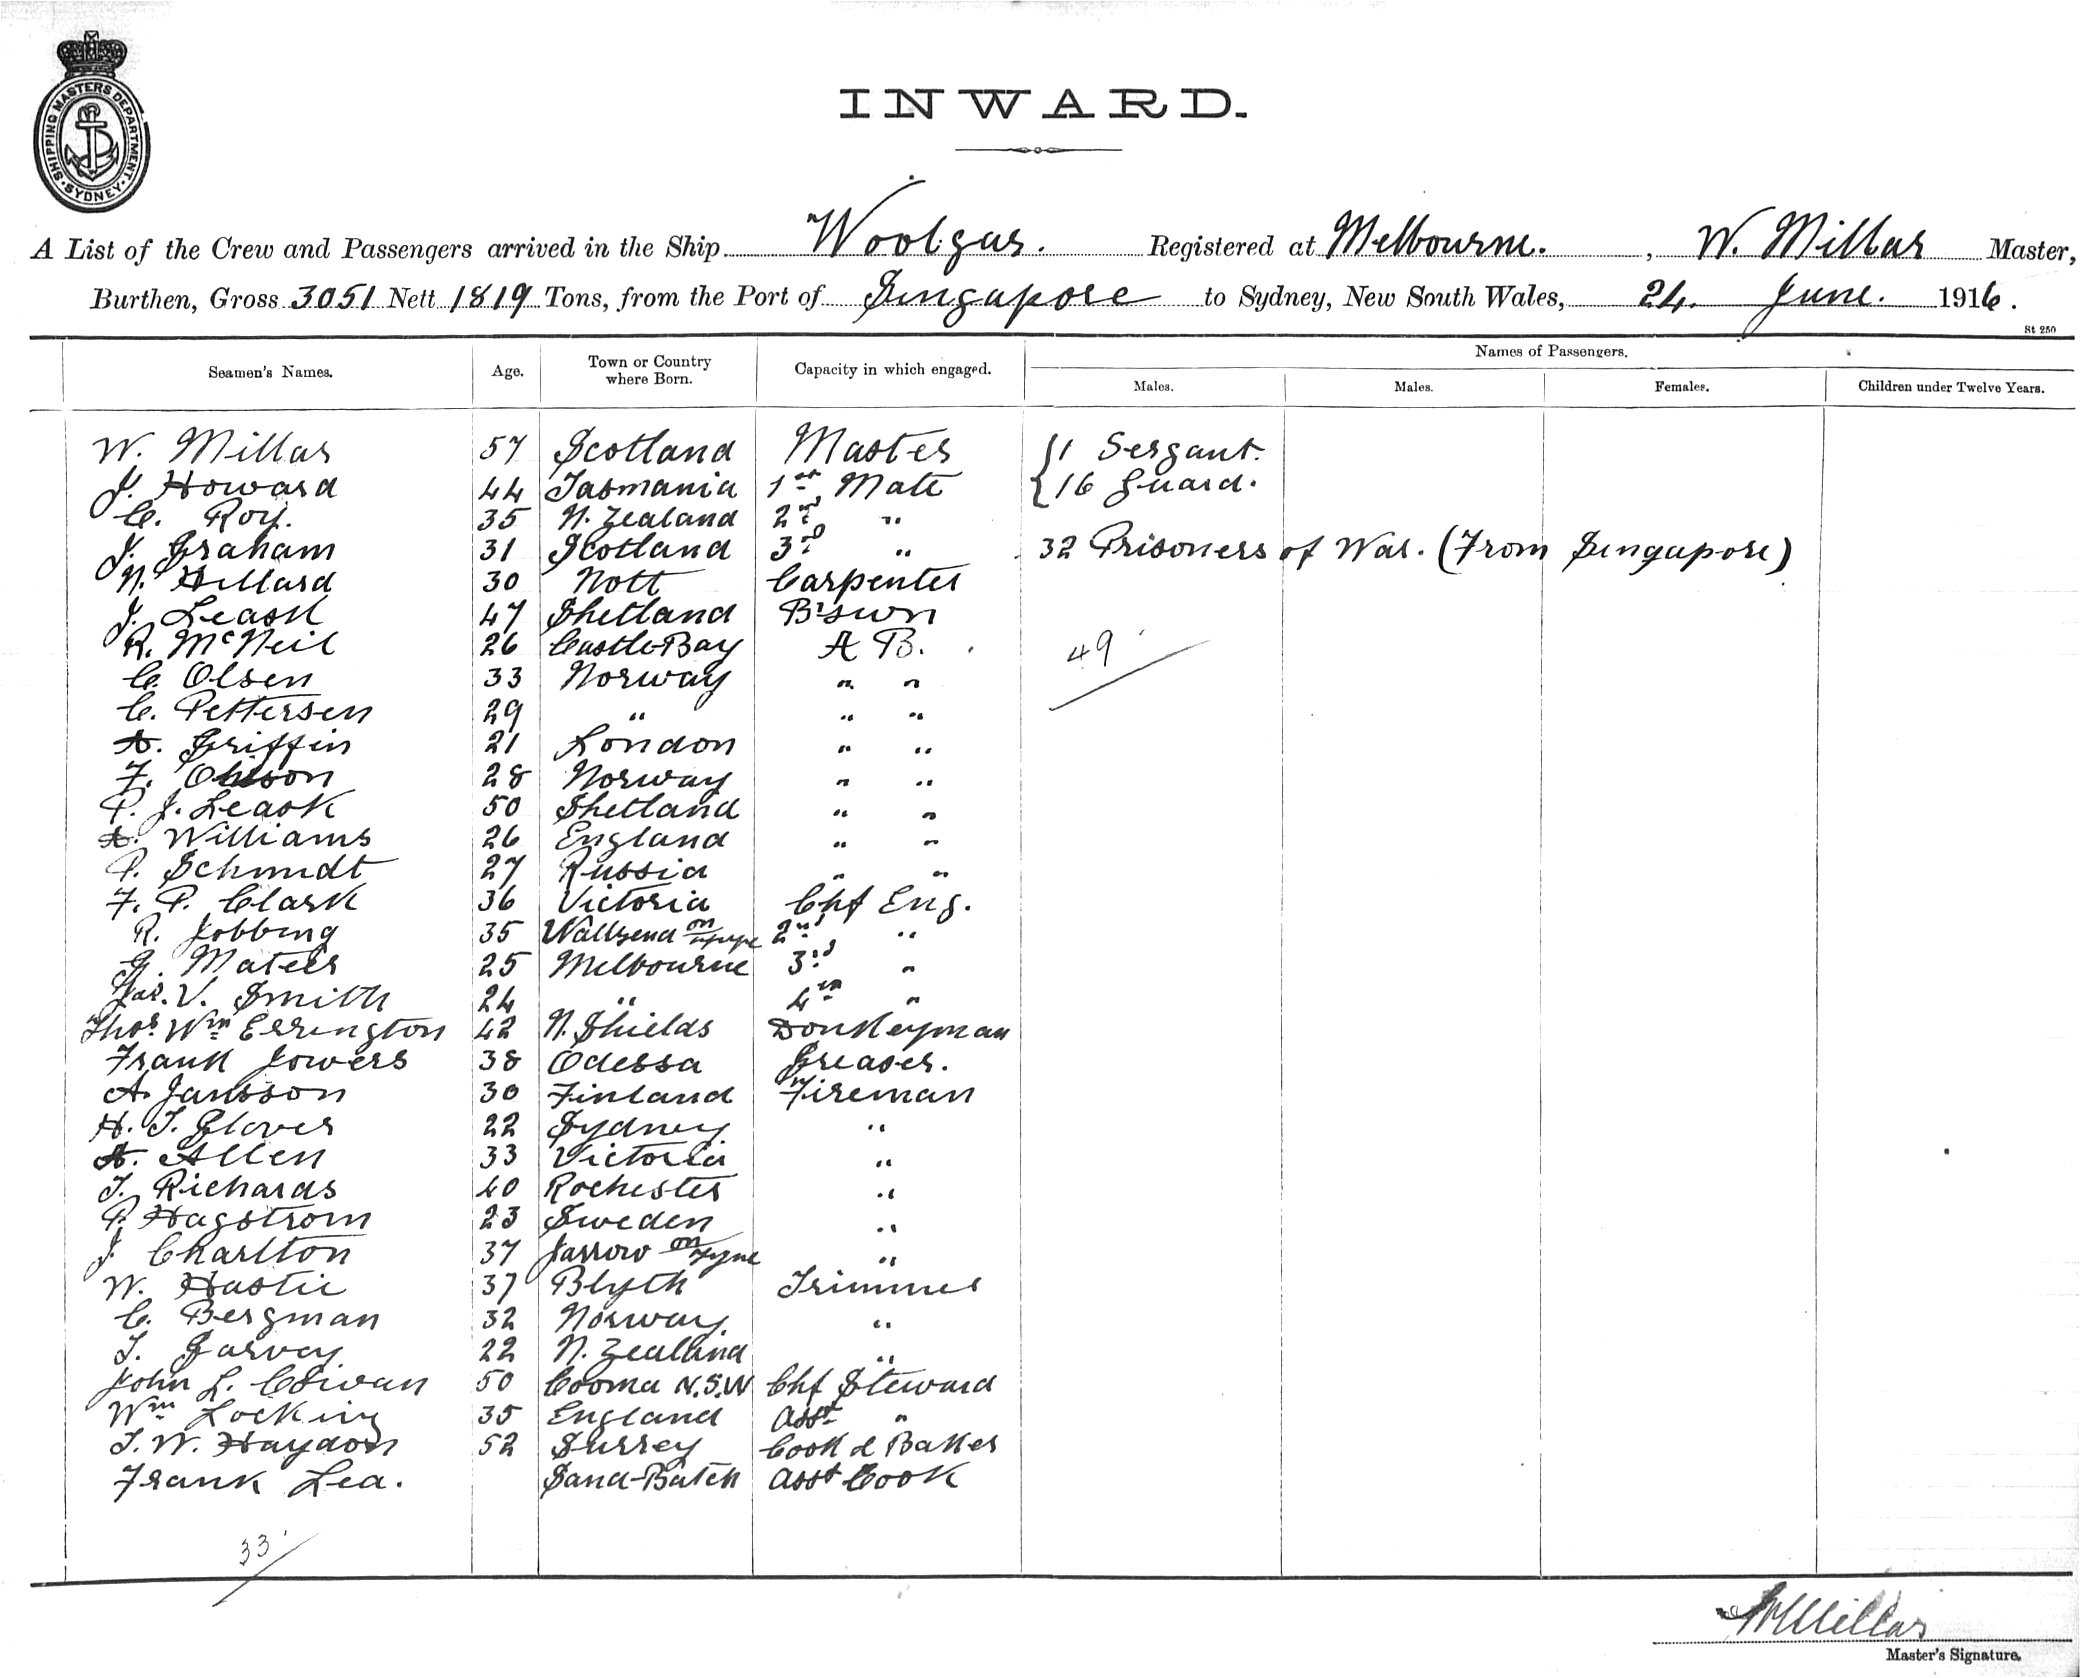 SHIPPING MASTERS DEPARTMENT. SYDNEY
INWARD.
A List of the Crew and Passengers arrived in the Ship Woolgar. Registered at Melbourne. , W. Millar Master,
Burthen, Gross 3051 Nett 1819 Tons, from the Port of Singapore to Sydney, New South Wales, 24. June. 1916.
St 250
Seamen's Names. Age. Town or Country where Born. Capacity in which engaged. Names of Passengers.
Males. Males. Females. Children under Twelve Years.
W. Millar 57 Scotland Master 1 Sergant.
J. Howard 44 Tasmania 1st Mate 16 Guard.
C. Roy. 35 N. Zealand 2nd "
J. Graham 31 Scotland 3rd " 32 Prisoners of War. (From Singapore)
N. Hillard 30 Nott Carpenter
J. Leask 47 Shetland B'swn
R. McNeil 26 Castle-Bay A B. 49
C. Olsen 33 Norway " "
C. Pettersen 29 " " "
A. Griffin 21 London " "
F. 28 Norway " "
P. J. Leask 50 Shetland " "
A. Williams 26 England " "
P. Schmidt 27 Russia " "
F. P. Clark 36 Victoria Chf Eng.
R. Jobbing 35 Wallsend on Tyne 2nd "
G. Mateer 25 Melbourne 3rd "
Jas. V. Smith 24 " 4th "
Thos Wm Errington 42 N. Shields Donkeyman
Frank Jowers 38 Odessa Greaser.
A. Jansson 30 Finland Fireman
H. T. Glover 22 Sydney "
A. Allen 33 Victoria "
T. Richards 40 Rochester "
P. Hagstrom 23 Sweden "
J. Charlton 37 Jarrow on Tyne "
W. Hastie 37 Blyth Trimmer
C. Bergman 32 Norway "
T. Garvey 22 N. Zealand "
John L. Cowan 50 Cooma N.S.W Chf Steward
Wm Locking 35 England Asst "
T. W. Haydon 52 Surrey Cook & Baker
Frank Lea. Sand-Batch Asst Cook
33
W Millar
Master's Signature.